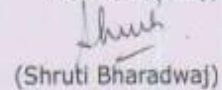 (Shruti Bharadwaj)